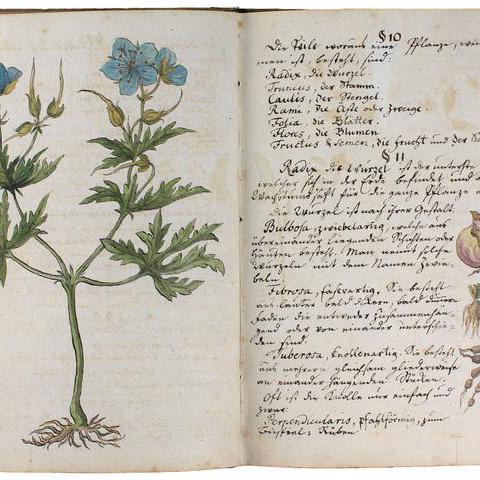 § 10
Die Teile woraus eine Pflanze,
men ist, besteht, sind:
Radix, die Wurzel.
Truncus, der Stamm.
Caulis, der Stengel.
Rami, die Aeste oder Zweige.
Folia, die Blätter.
Flores, die Blumen
Fructus & Semen, die Frucht und der
§ 11
Radix die Wurzel ist der unterste
welcher sich in der Erde befindet und
Wachsthum Saft für die ganze Pflanze
die Wurzel ist nach ihrer Gestalt;
Bulbosa, zwiebelartig, welche aus
übereinander liegenden Schichten oder
Häuten besteht. Man nennt solche
Wurzeln mit dem Namen Zwie-
beln.
Fibrosa, faserartig. Sie besteht
aus lauter bald dickern, bald dünnern
Faden die entweder zusammenhan-
gend oder von einander unterschie-
den sind.
Tuberosa, knollenartig. Sie besteht
aus mehrern gleichsam gliederweise
an einander hangenden Stücken.
Oft ist die Knolle nur einfach und
zwar:
Perpendicularis, pfahlförmig, zum
Rüben